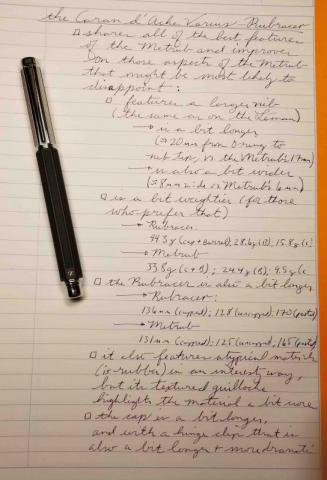 the Caran d'Ache Varius Rubracer
□ shares all of the best features
of the Metrub and improves
on those aspects of the Metrub
that might be most likely to
disappoint:
□ features a larger nib
(the same as on the Leman)
→ is a bit longer
(≈20mm from O-ring to
nib tip, vs the Metrub's 17mm)
→ is also a bit wider
(≈8mm wide vs Metrub's 6mm)
□ is a bit weightier (for those
who prefer that)
→ Rubracer:
44.3g (cap + barrel), 28.6g (B), 15.8g (C
→ Metrub
33.8g (C+B); 24.4g (B); 9.5g (C
□ the Rubracer is also a bit longer
→ Rubracer:
136mm (capped); 128 (uncapped); 170 (posted)
→ Metrub
131mm (capped); 125 (uncapped); 165 (posted)
□ it also features atypical materials
(ie rubber) in an interest way,
but its textured guilloche
highlights the material a bit more
□ the cap is a bit longer,
and with a hinge clip that is
also a bit longer + more dramatic